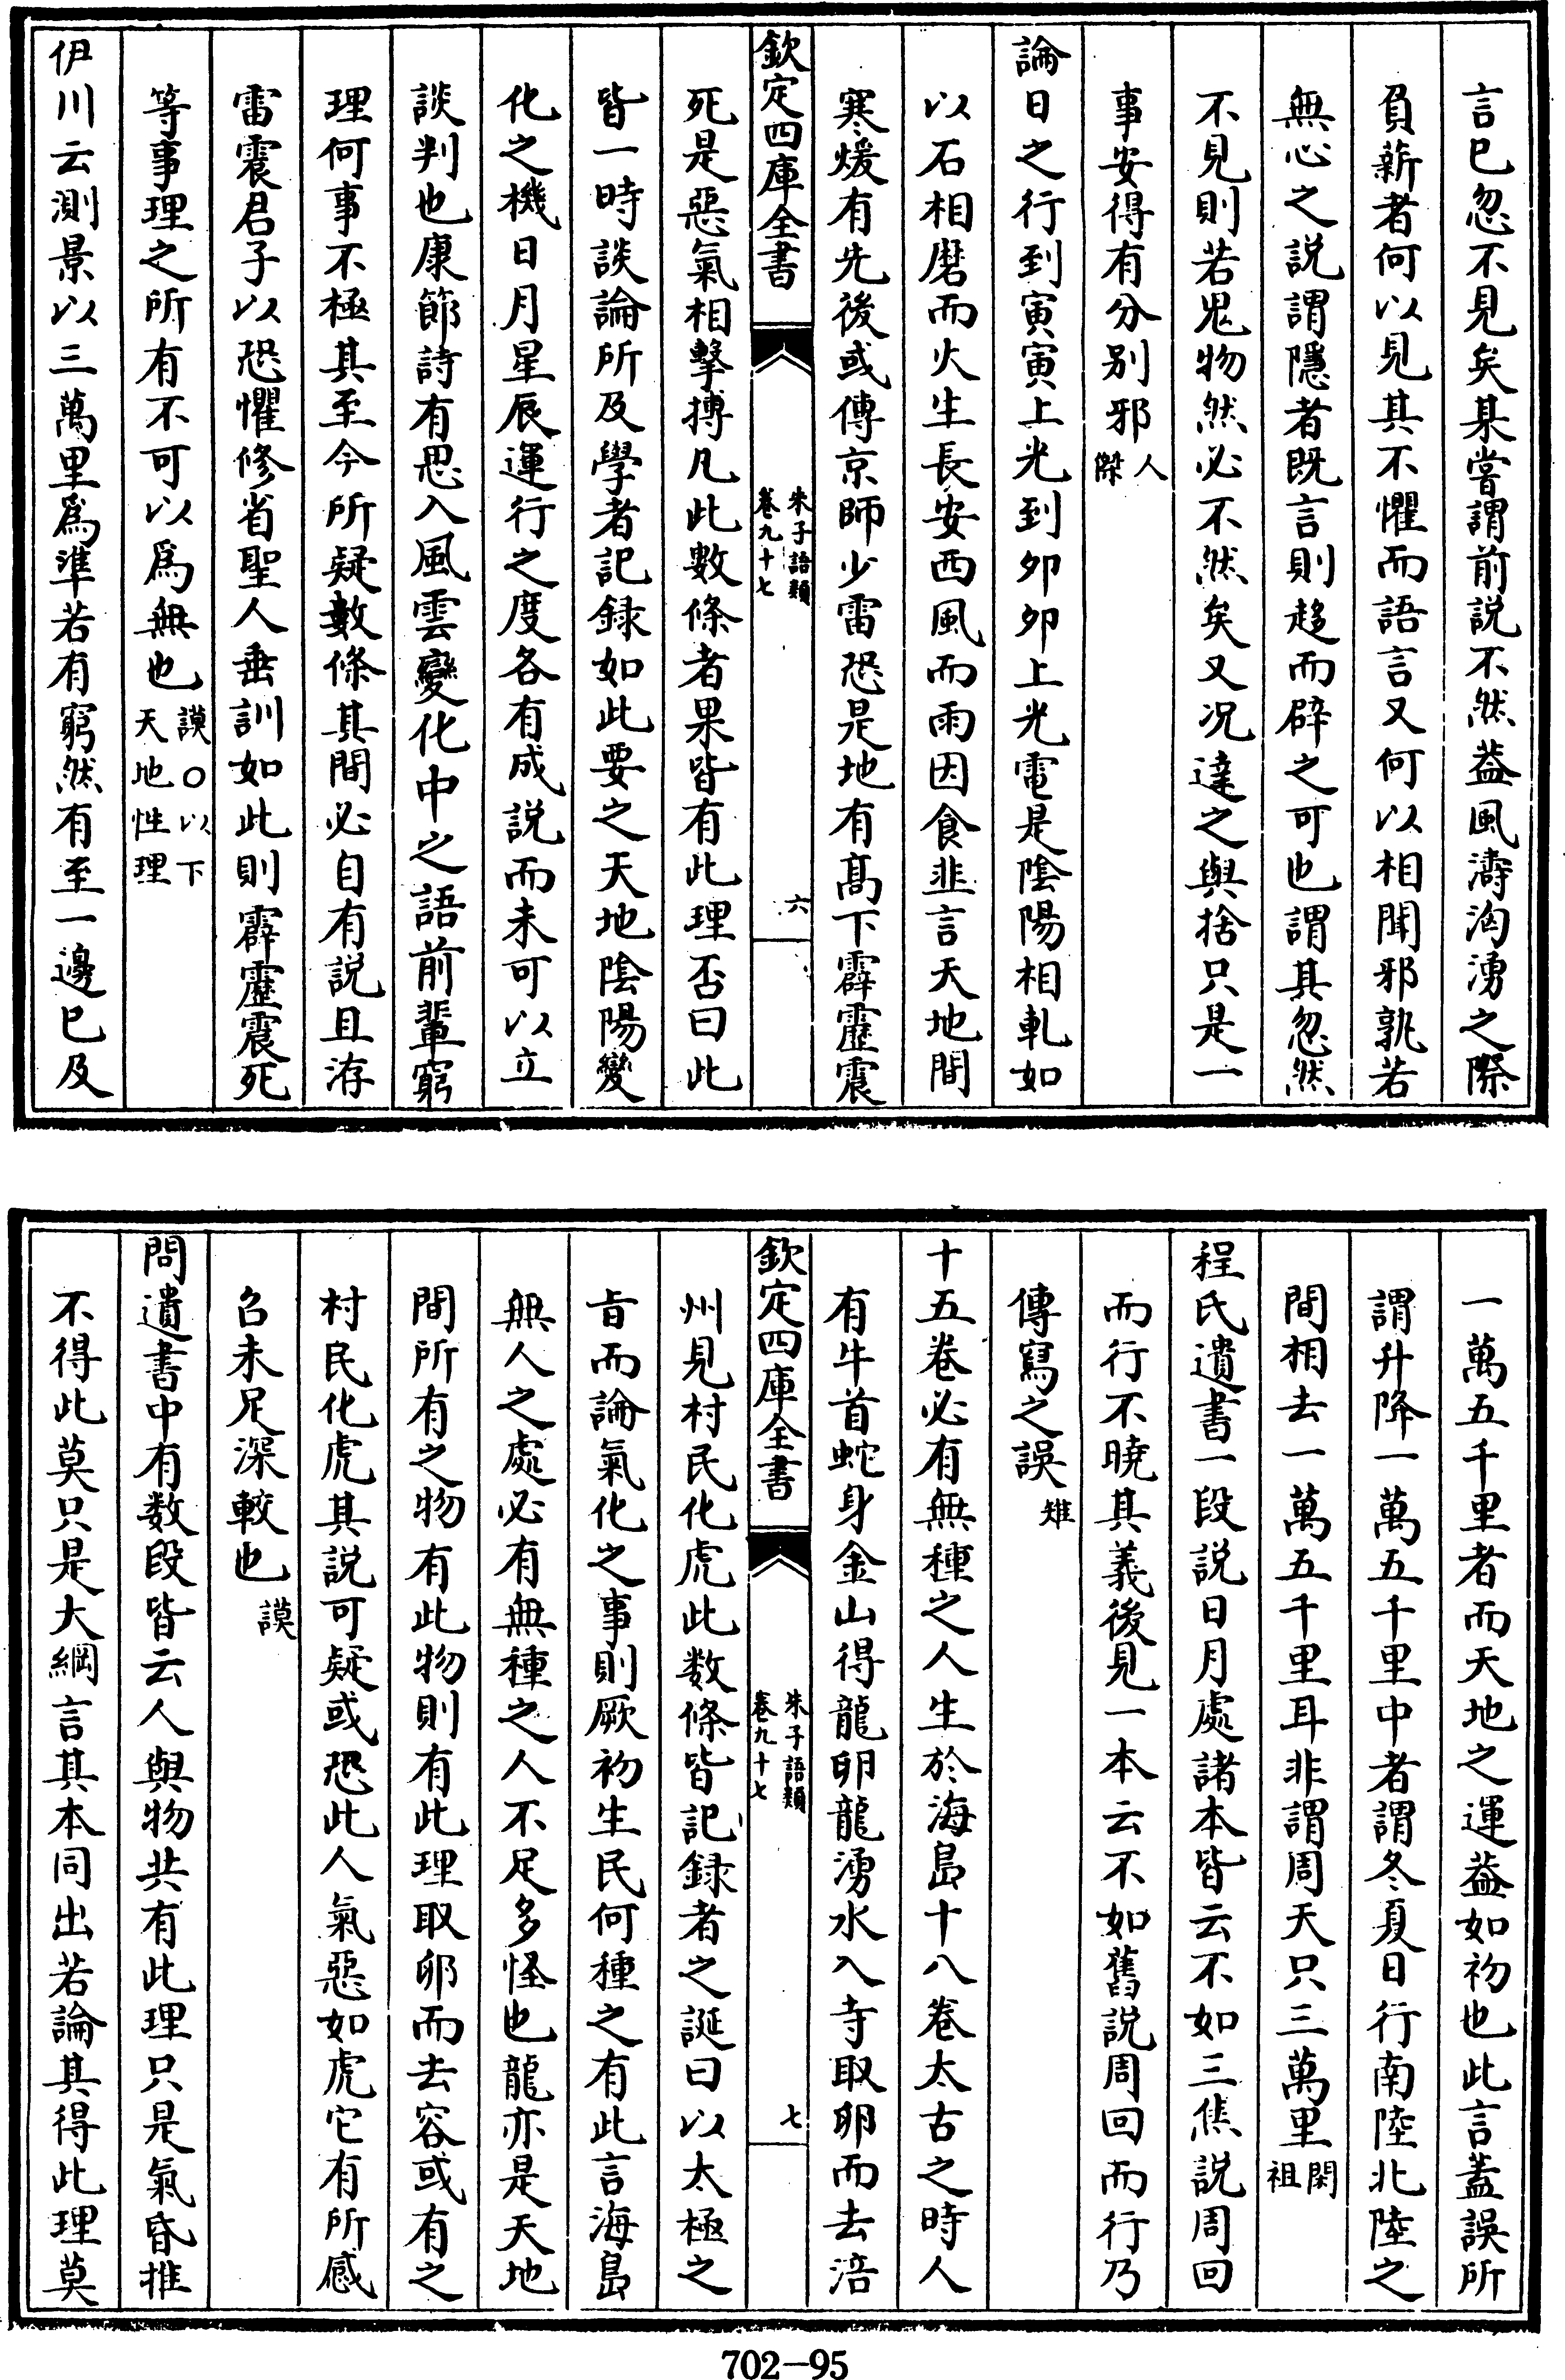 言已忽不見矣某嘗謂前説不然葢風濤洶湧之際
負薪者何以見其不懼而語言又何以相聞邪孰若
無心之説謂隱者既言則趍而辟之可也謂其忽然
不見則若鬼物然必不然矣又况達之與捨只是一
事安得有分别邪人傑
論日之行到寅寅上光到卯卯上光電是陰陽相軋如
以石相磨而火生長安西風而雨因食韭言天地間
寒煖有先後或傳京師少雷恐是地有髙下霹靂震
欽定四庫全書
朱子語類
卷九十七
六
死是惡氣相擊搏凡此數條者果皆有此理否曰此
皆一時談論所及學者記録如此要之天地陰陽變
化之機日月星辰運行之度各有成説而未可以立
談判也康節詩有思入風雲變化中之語前輩窮
理何事不極其至今所疑數條其間必自有説且洊
雷震君子以恐懼修省聖人垂訓如此則霹靂震死
等事理之所有不可以爲無也謨〇以下天地性理
伊川云測景以三萬里爲準若有窮然有至一邊已及
一萬五千里者而天地之運葢如初也此言葢誤所
謂升降一萬五千里中者謂冬夏日行南陸北陸之
間相去一萬五千里耳非謂周天只三萬里閎祖
程氏遺書一段説日月處諸本皆云不如三焦説周回
而行不曉其義後見一本云不如舊説周回而行乃
傳寫之誤䧹
十五卷必有無種之人生於海島十八卷太古之時人
有牛首蛇身金山得龍卵龍湧水入寺取卵而去涪
欽定四庫全書
朱子語類
卷九十七
七
州見村民化虎此数條皆記録者之誕曰以太極之
㫖而論氣化之事則厥初生民何種之有此言海島
無人之處必有無種之人不足多怪也龍亦是天地
間所有之物有此物則有此理取卵而去容或有之
村民化虎其説可疑或恐此人氣惡如虎它有所感
召未足深較也謨
問遺書中有数段皆云人與物共有此理只是氣昏推
不得此莫只是大綱言其本同出若論其得此理莫
702-95